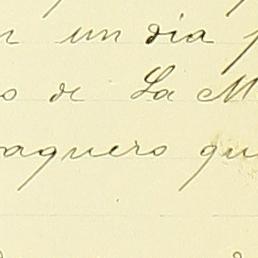 un dia
de La M
aquero qu